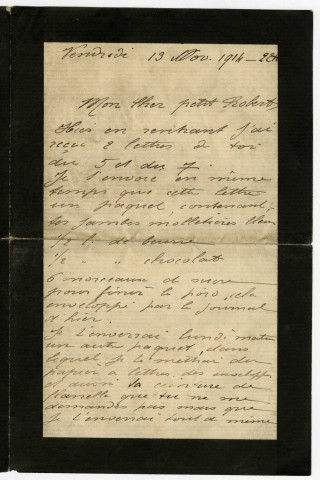 Vendredi 13 Nov. 1914 – 22h
Mon cher petit Robert
Hier en rentrant j'ai
reçu 2 lettres de toi
du 5 et du 7.
Je t'envoie en même
temps que cette lettre
un paquet, contenant:
tes jambes molletières bleues
1/2 l. de beurre
1/2 " " chocolat
6 morceaux de sucre
pour finir le poids, cela
enveloppé par le journal
d'hier.
Je t'enverrai lundi matin
un autre paquet, dans
lequel je te mettrai du
papier à lettres, des enveloppes
et aussi ta ceinture de
flanelle que tu ne me
demandes pas mais que
je t'enverrai tout de même